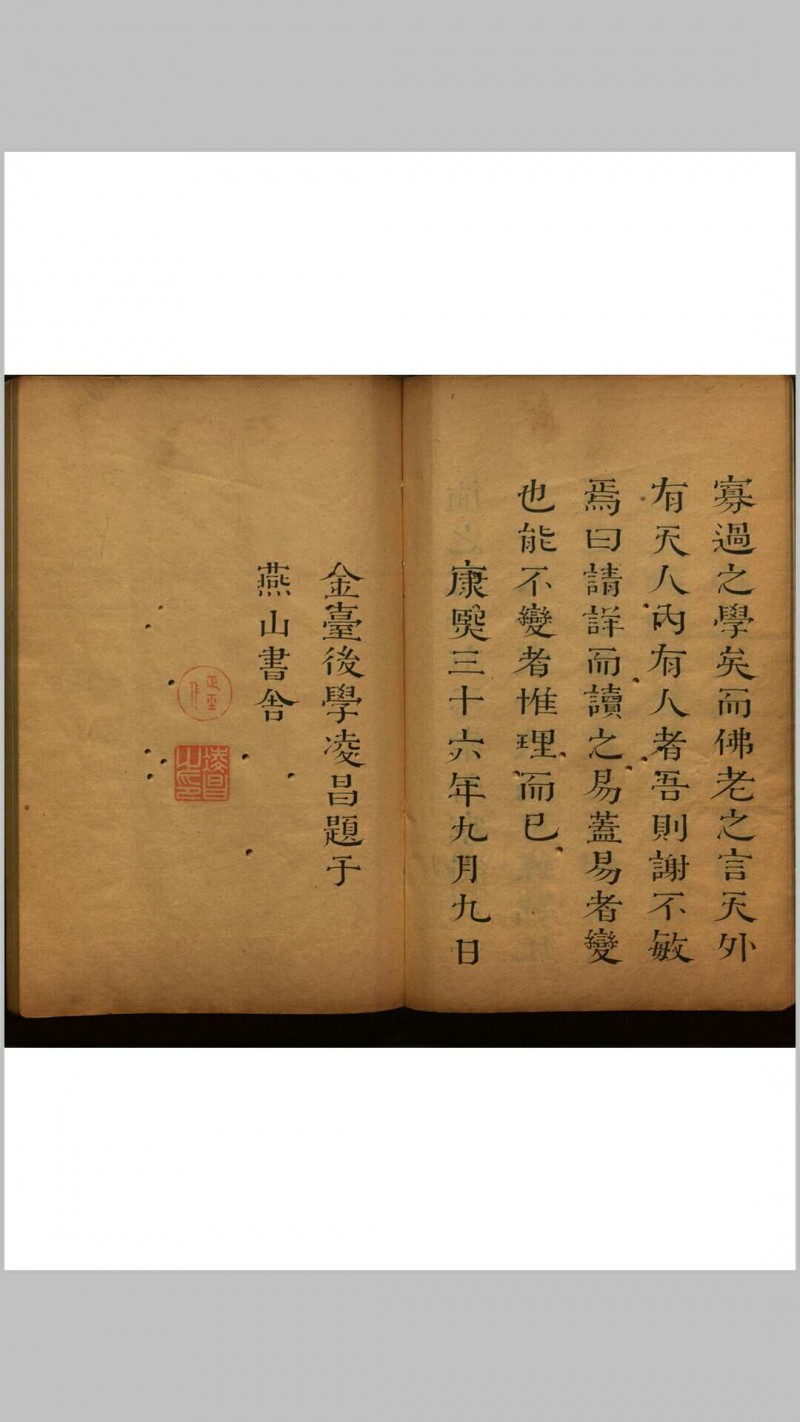 寡過之學矣而佛老之言天外
有天人內有人者吾則謝不敏
焉曰請詳而讀之易蓋易者變
也能不變者惟理而已
康熙三十六年九月九日
金臺後學凌昌題于
燕山書舍